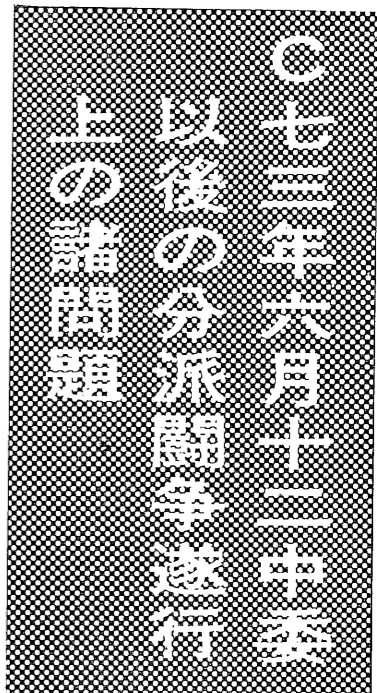 C七三年六月十二中委
以後の分派闘争遂行
上の諸問題